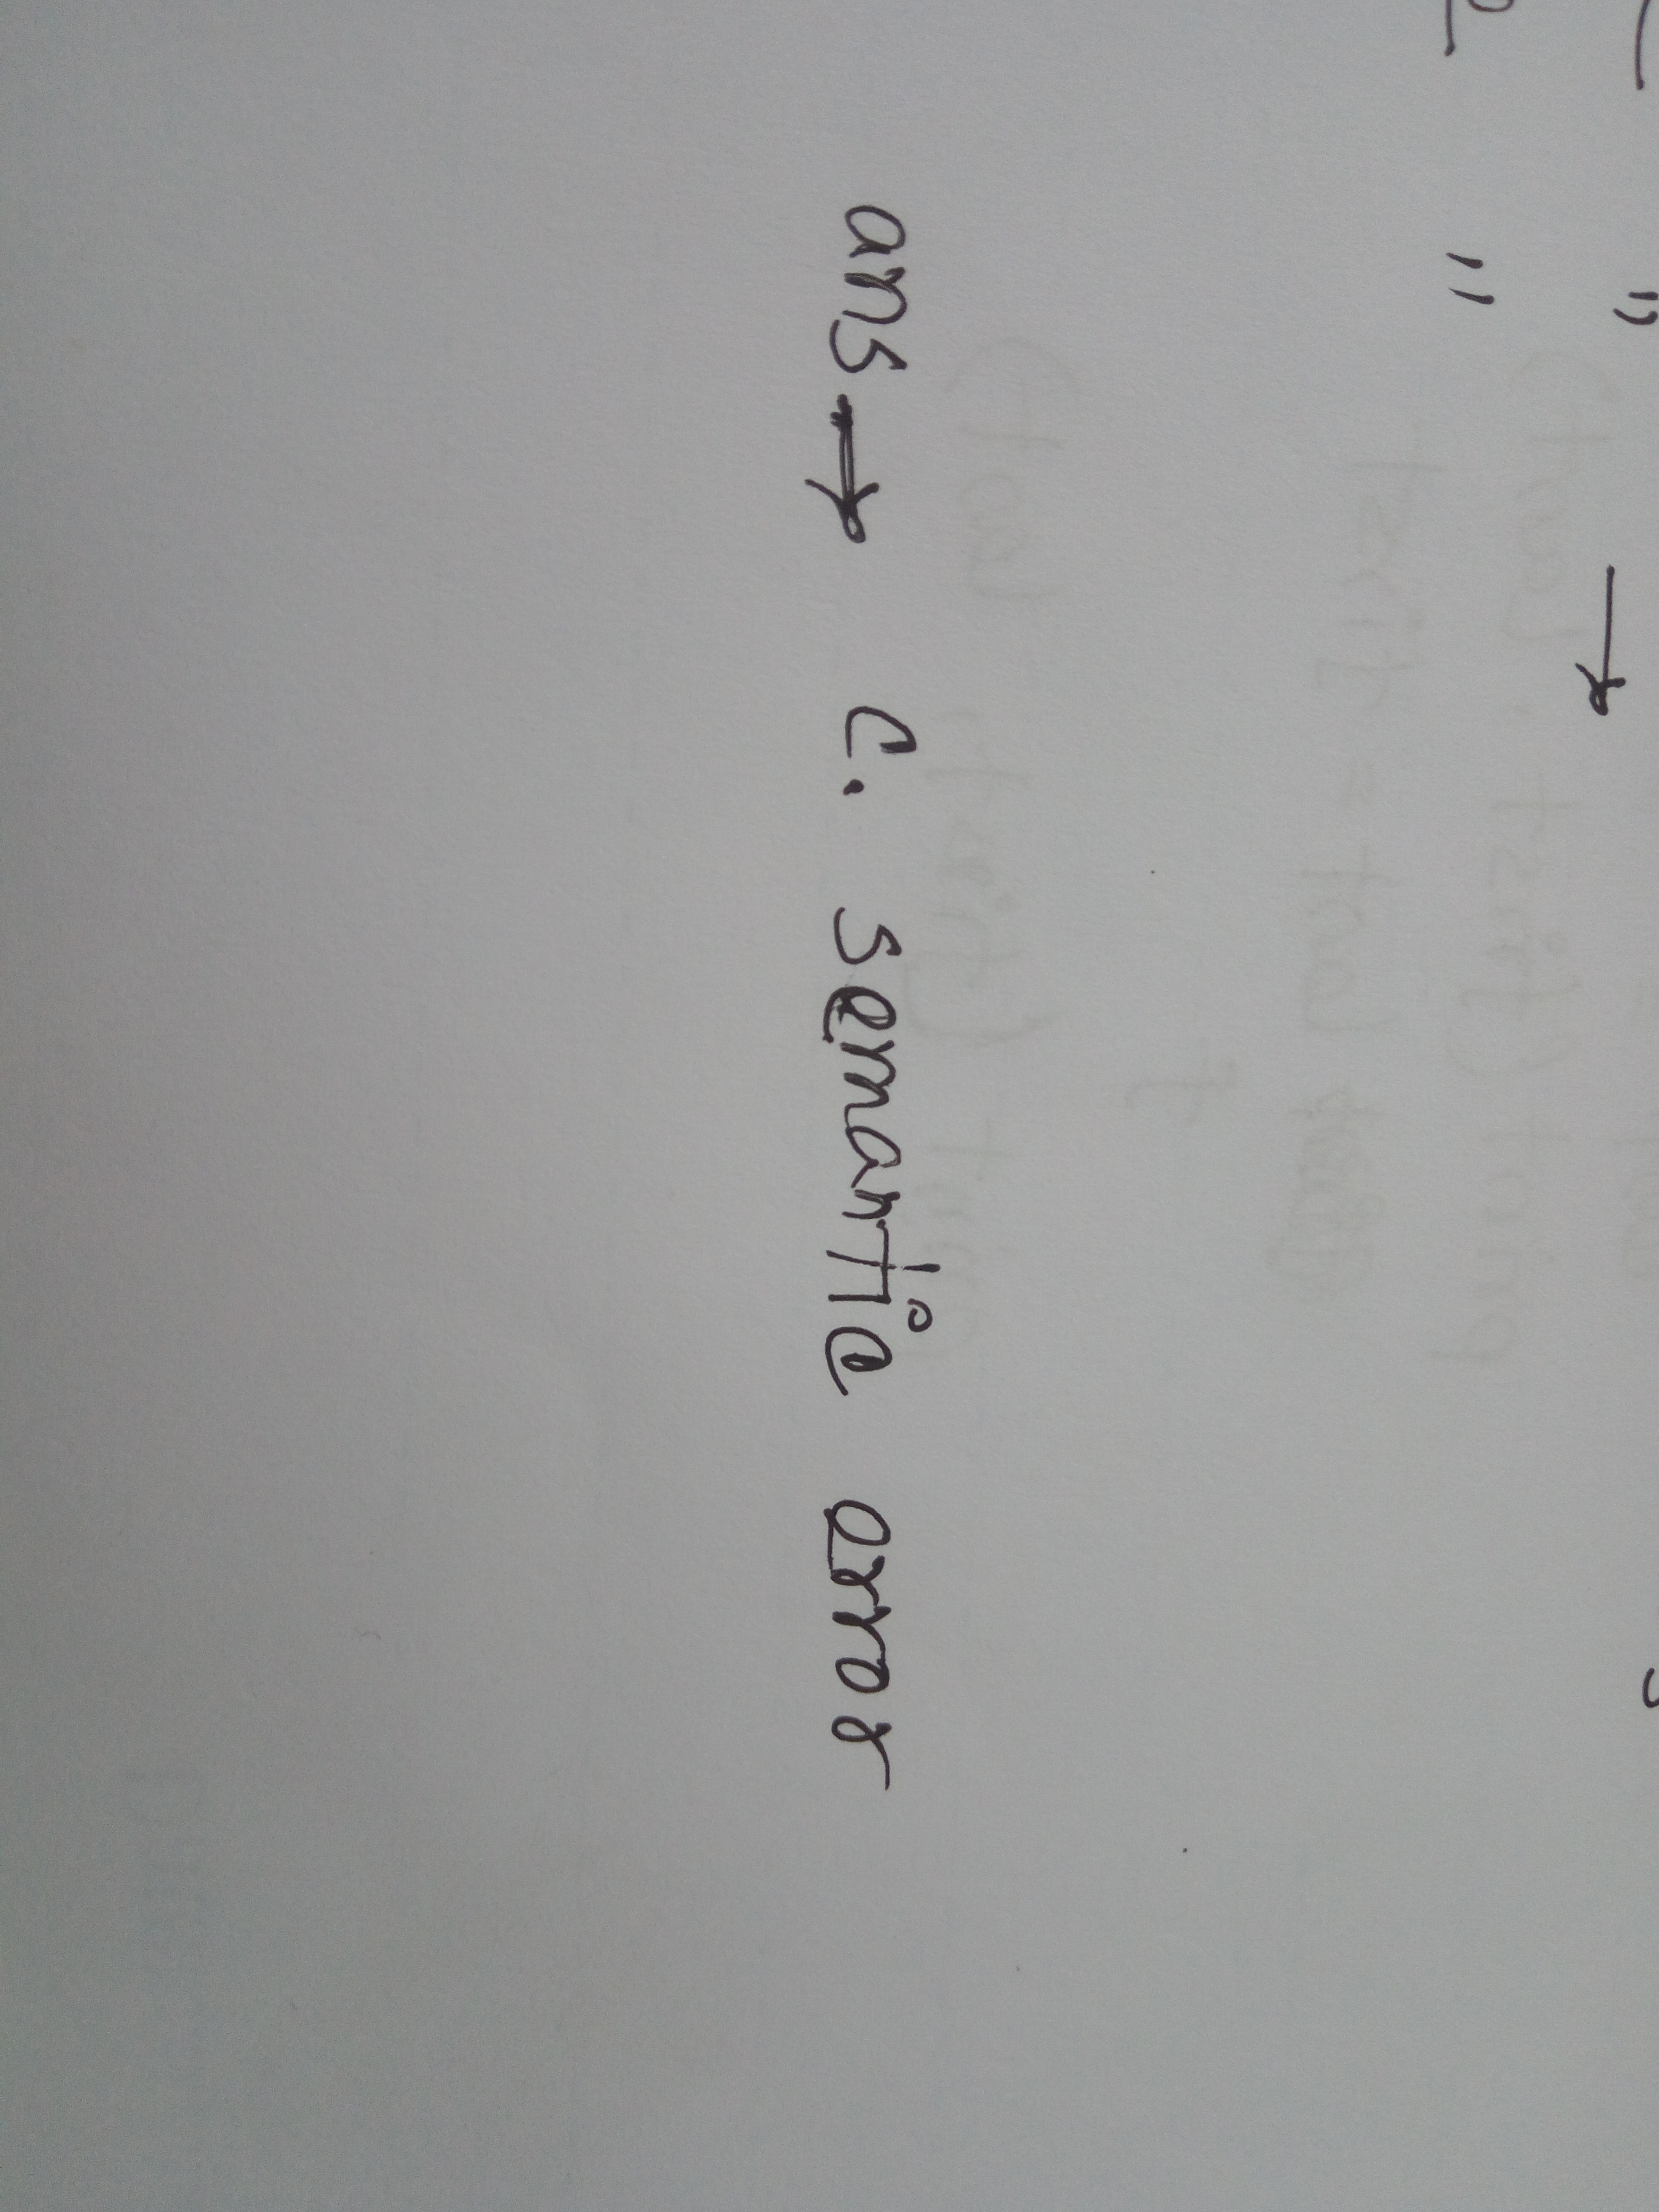 " →
"
ans → c. semantic error